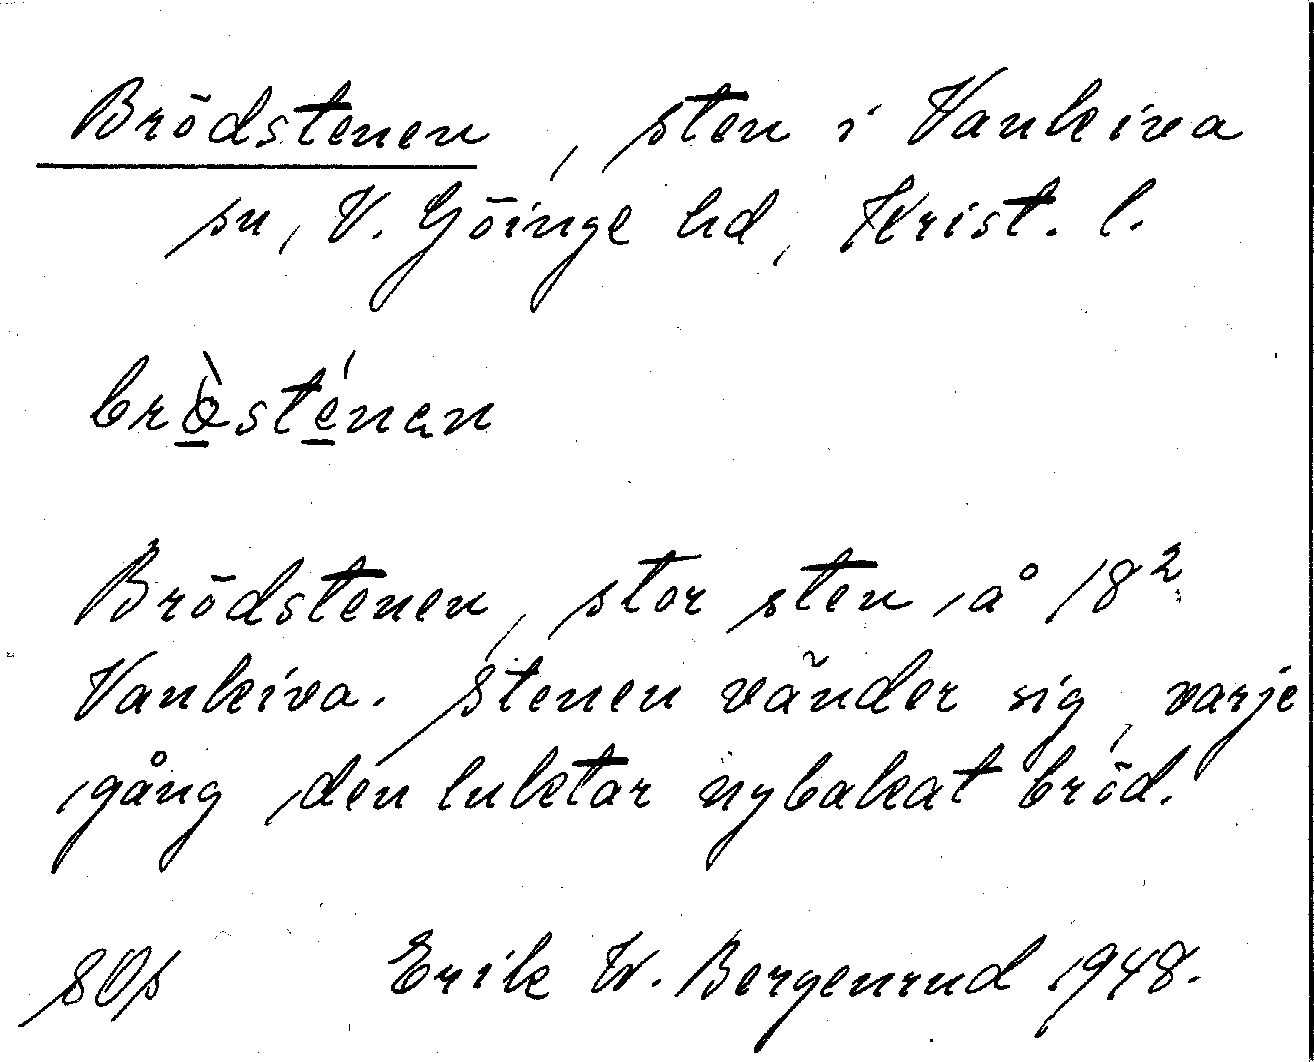 Brödstenen, sten i Vankiva
sn, V. Göinge hd, Krist. l.
brö̀sténan
Brödstenen, stor sten å 18²
Vankiva. Stenen vänder sig, varje
gång den luktar nybakat bröd.
Erik W. Bergenrud 1948.